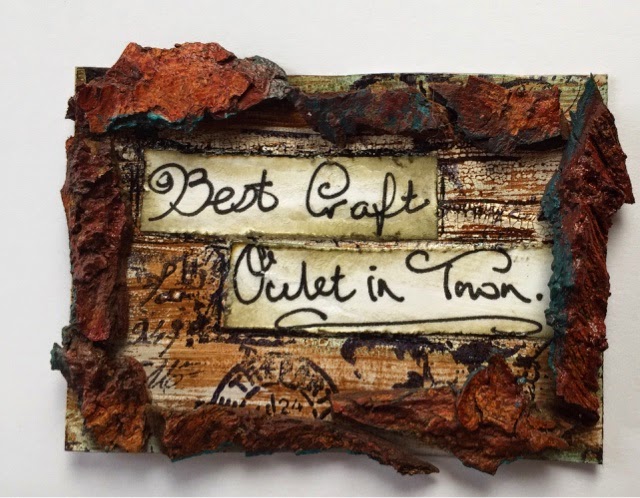 Best Craft
Oulet in Town.
24